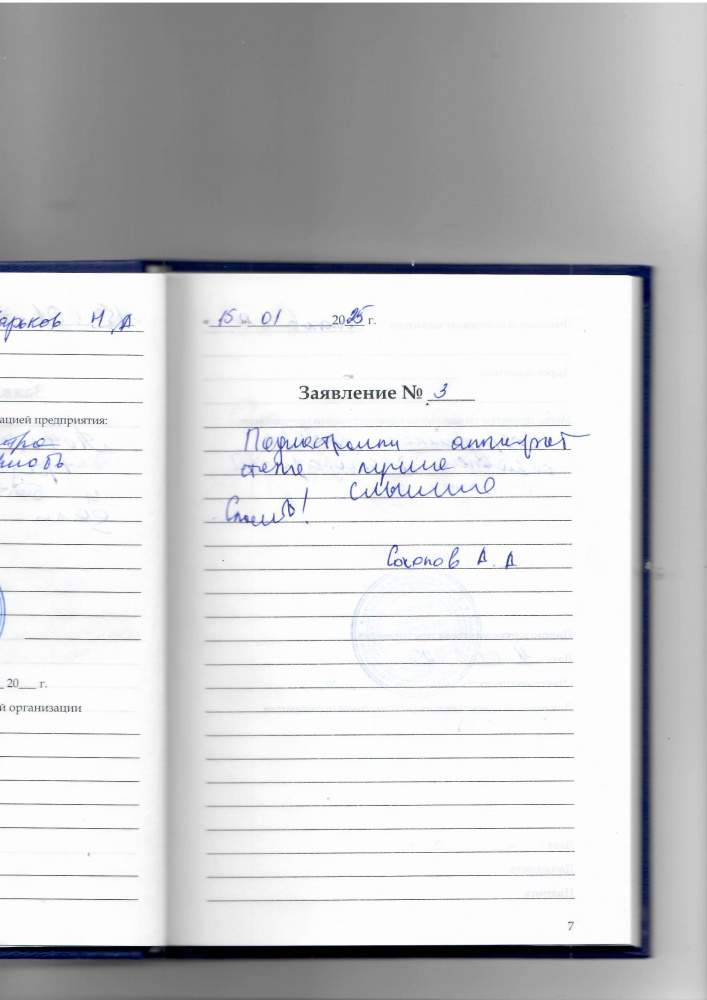 арьков Н А
ацией предприятия:
20___ г.
й организации
« 15 » 01 2025 г.
Заявление № 3
Поднастроили аппарат
стало лучше
слышно
Спасибо!
А. А
7